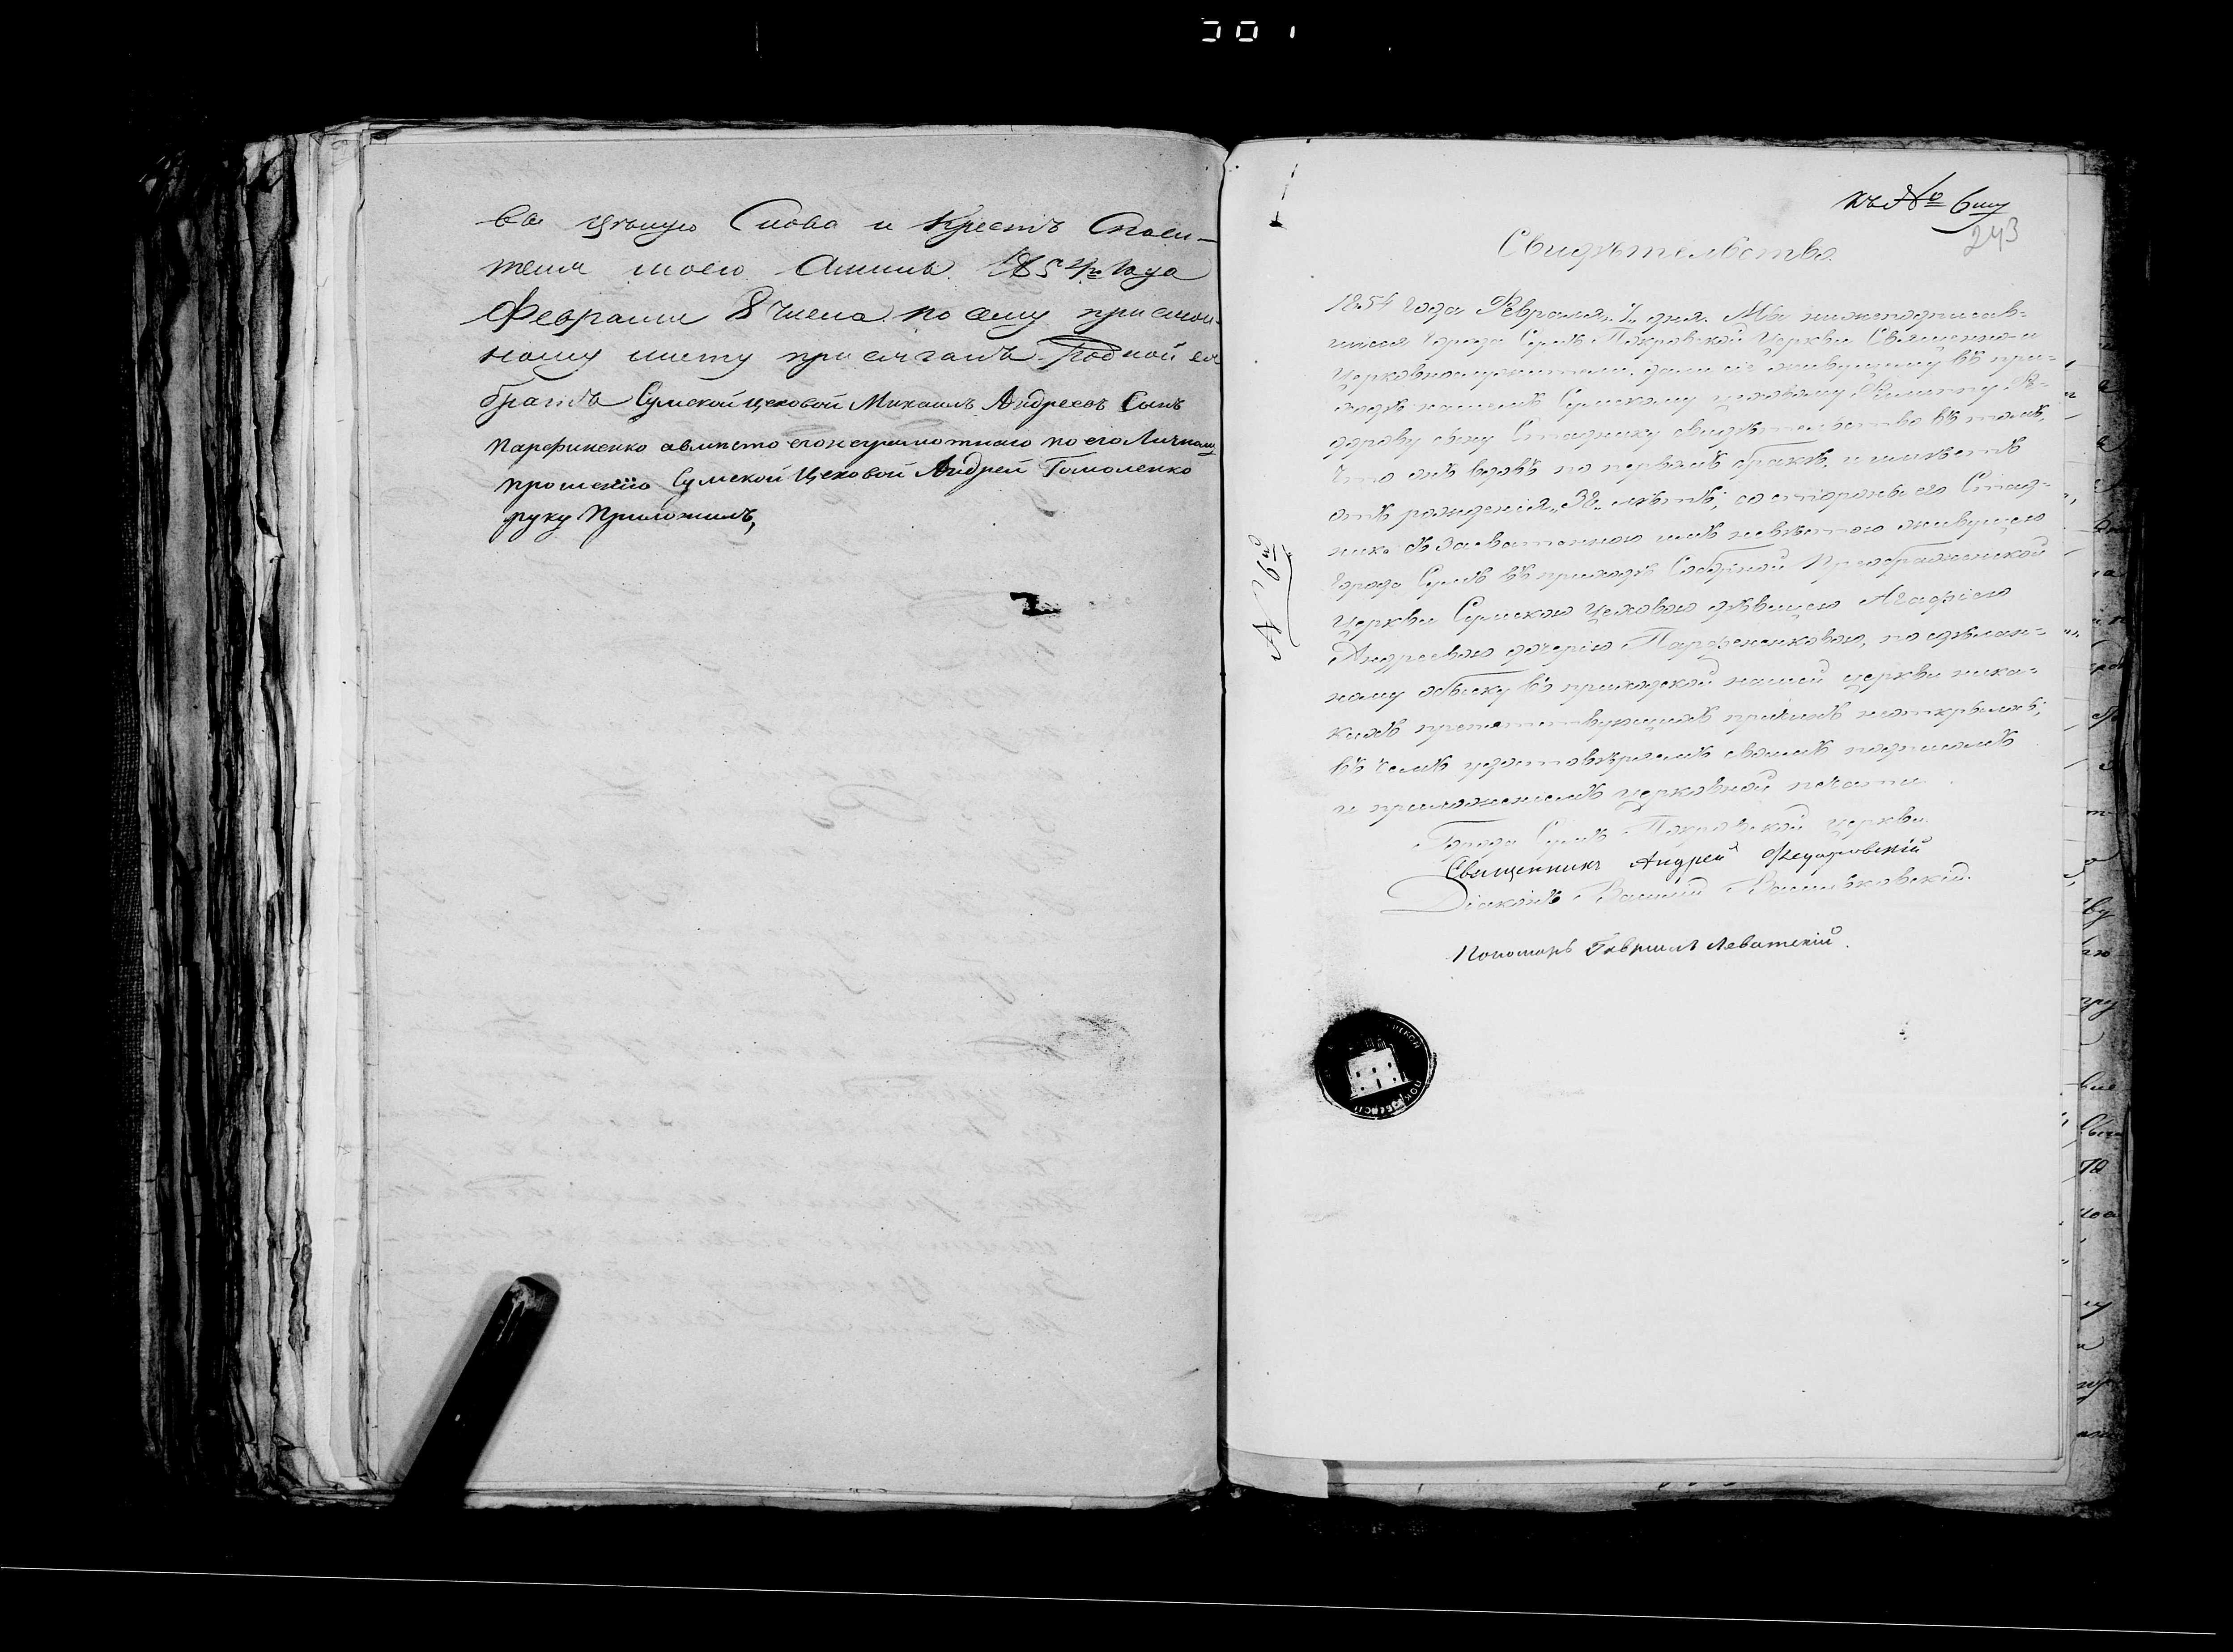 301
ва цѣлую Слова и Крестъ Спаси-
теля моего Аминь. 1854го Года
Февраля 8 числа по сему присяж-
ному листу присягалъ Родной ея
братъ Сумской цеховой Михаилъ Андреевъ Сынъ
Парфиненко авместо его неграмотнаго по его Личному
прошенію Сумской Цеховой Андрей Гомоленко
руку Приложилъ,
къ № 6му
243
Свидѣтельство.
1854 года Февраля 7 дня. Мы нижеподписав-
шіеся Города Сумъ Покровской Церкви Священно и
Церковнослужители дали сіе живущему въ при-
ходѣ нашемъ Сумскому цеховому Филиппу Фе-
дорову сыну Стаднику свидѣтельство въ томъ,
Что онъ вдовъ по первомъ бракѣ, и имѣетъ
отъ рожденія 32 лѣтъ; со стороны его Стад-
ника съ засватанною имъ невѣстою живущею
Города Сумъ въ приходѣ Соборной Преображенской
Церкви Сумскою Цеховою дѣвицею Агафіею
Андреевою дочерью Парфененковою, по сдѣлан-
ному обыску въ приходской нашей церкви ника-
кихъ препятствующихъ причинъ неоткрылось;
въ чемъ удостовѣряемъ своимъ подписомъ
и приложеніемъ церковной печати
Города Сумъ Покровской церкви
Священникъ Андрей Федоровскій
Діаконъ Василій Васильковскій.
Пономарь Гавріилъ Левитскій.
№ 6й